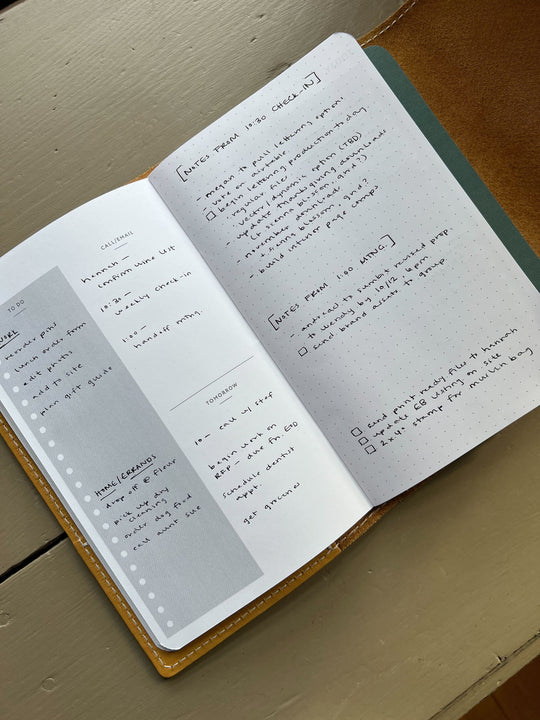 TO DO
WORK
reorder pens
lunch order form
edit photos
add to site
plan gift guide
HOME/ERRANDS
drop off @ fleur
pick up dry
cleaning
order dog food
call aunt sue
CALL/EMAIL
hannah -
confirm wine list
10:30 -
weekly check-in
1:00 -
handoff mtng.
TOMORROW
10 - call w/ stef
begin work on
RFP - due fri. EOD
schedule dentist
appt.
get groceries
[NOTES FROM 10:30 CHECK-IN]
- megan to pull lettering options
vote on airtable
begin lettering production today.
- regular file
- vector/dynamic option (TBD)
- update thanksgiving downloads
(t sienna blossom, grid?)
- november download
- t sienna blossom, grid?
- build interior page comps
[NOTES FROM 1:00 MTNG.]
- andrea to sumbit revised prop.
to wendy by 10/12 6pm
send brand assets to group
send print ready files to hannah
update EB listing on site
2x4" stamp for muslin bag